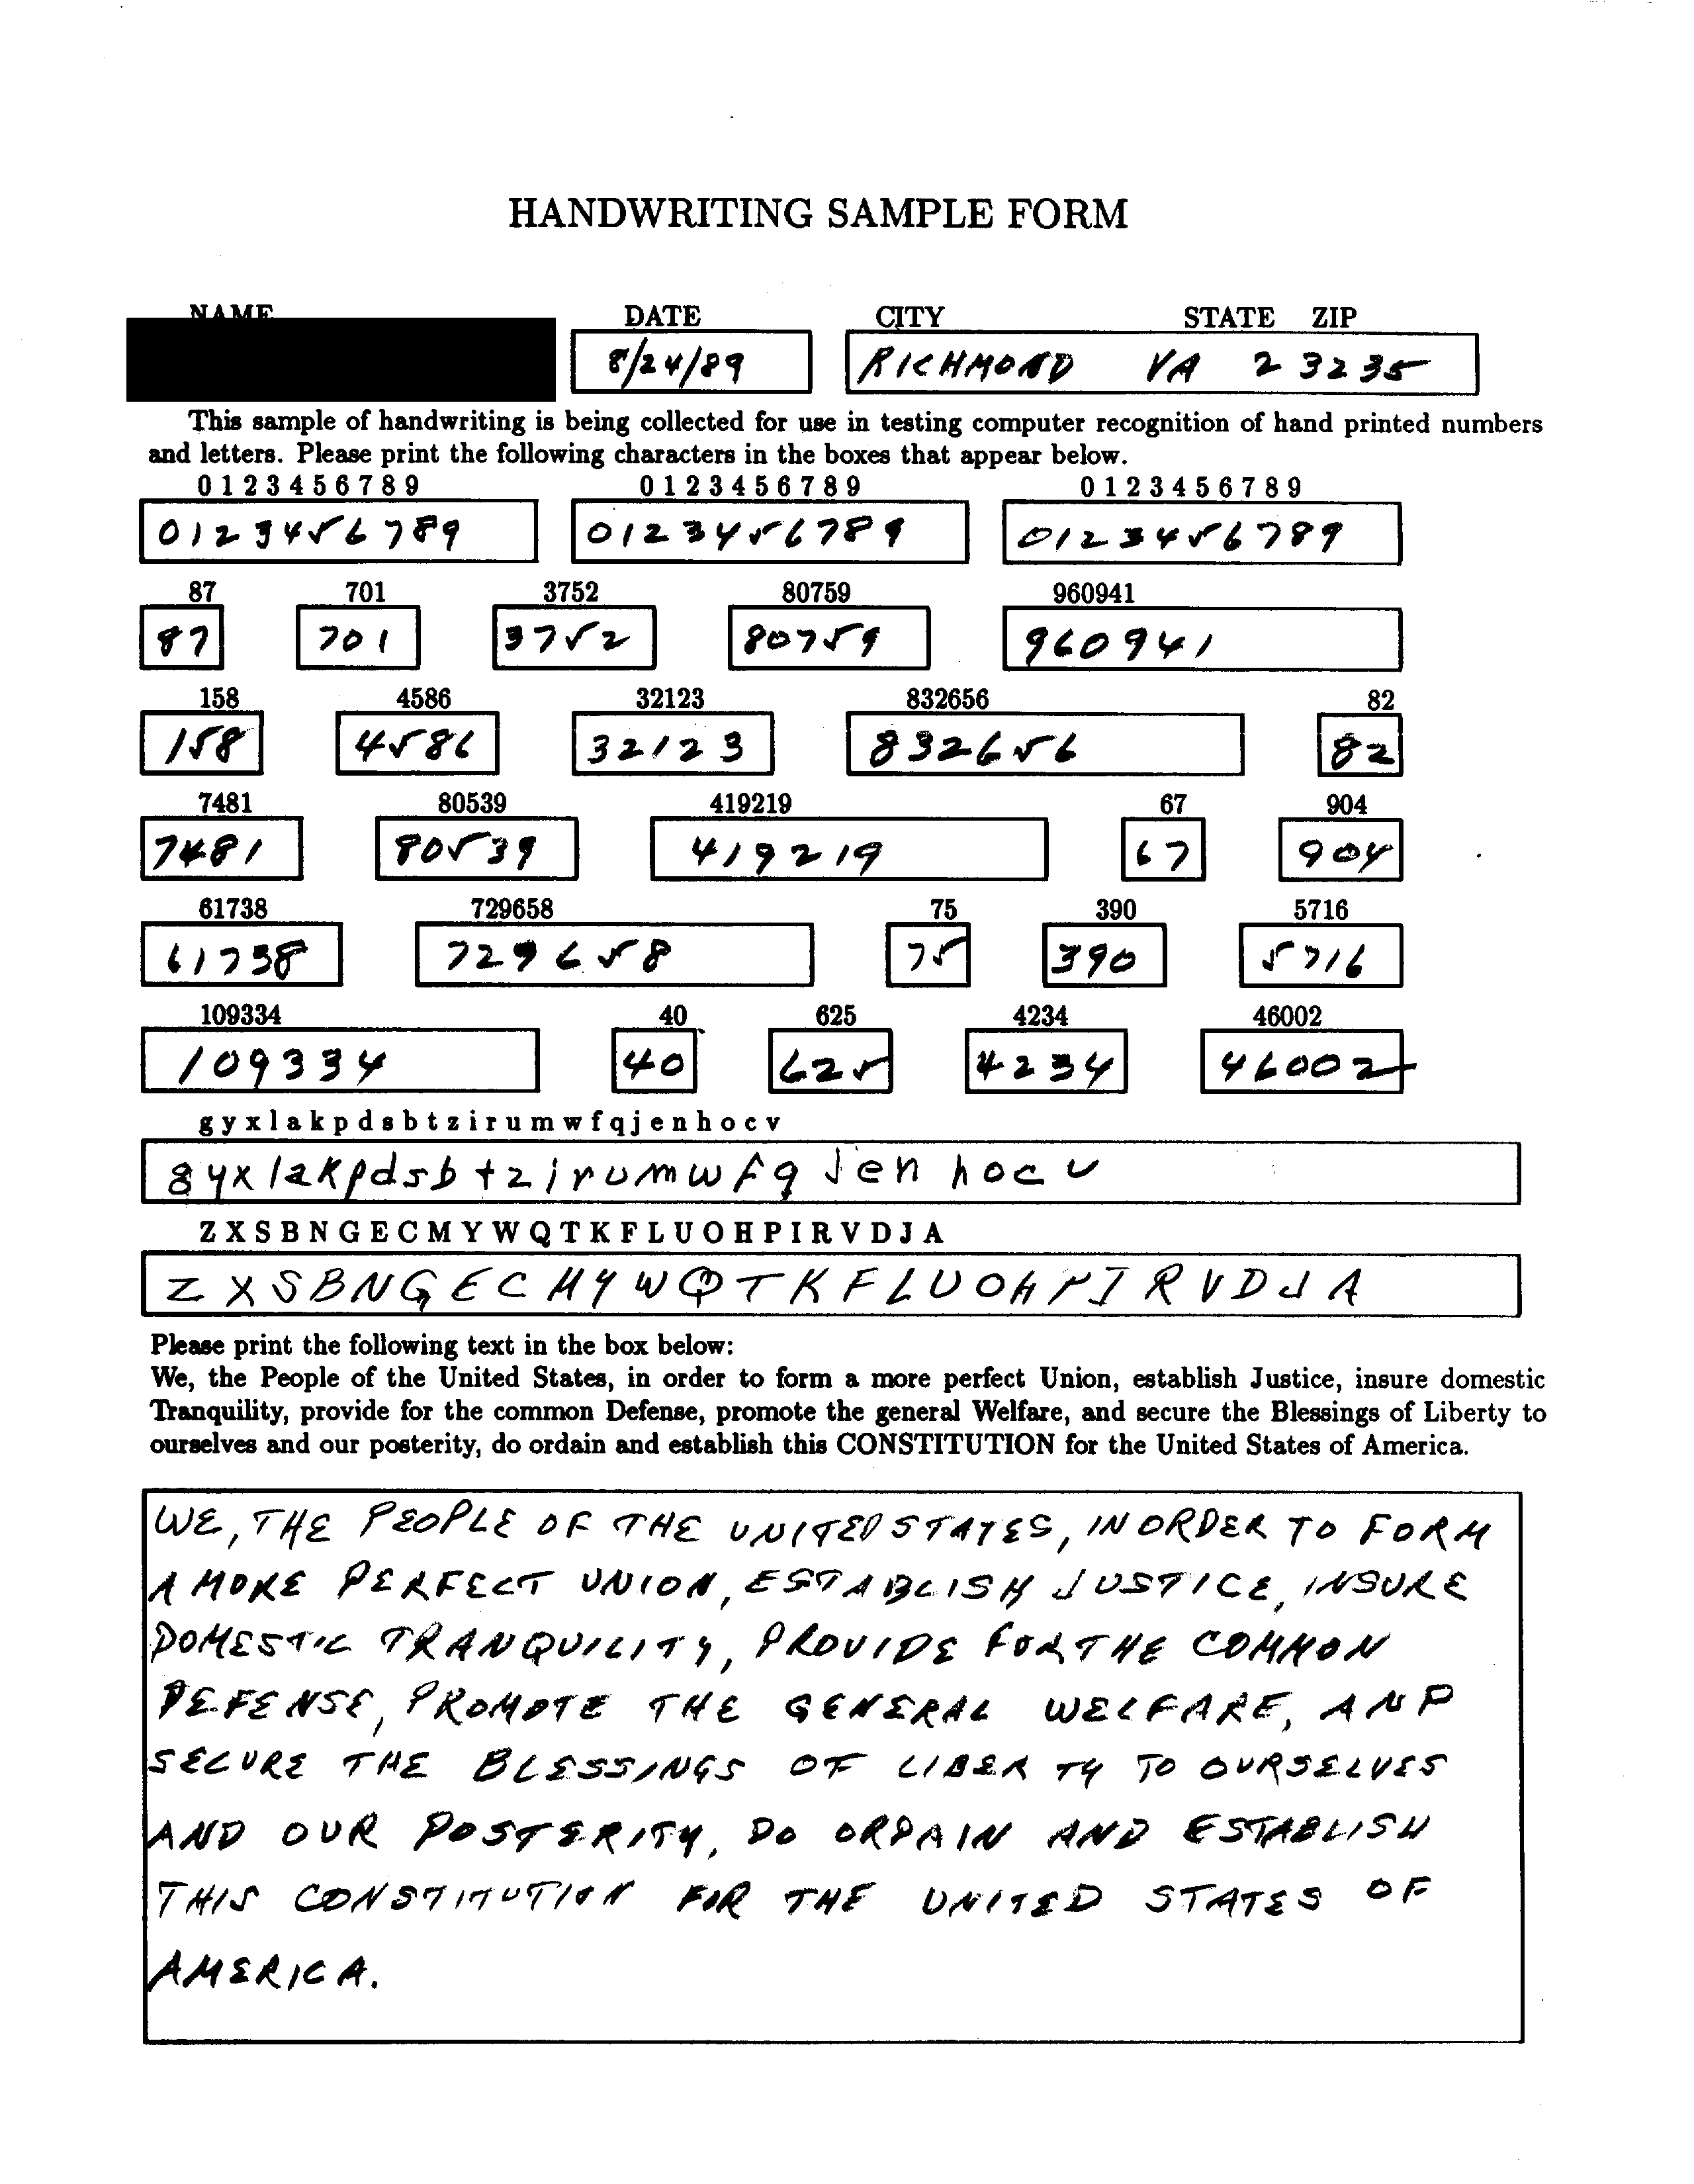 HANDWRITING SAMPLE FORM
NAME DATE CITY STATE ZIP
8/24/89 RICHMOND VA 23235
This sample of handwriting is being collected for use in testing computer recognition of hand printed numbers
and letters. Please print the following characters in the boxes that appear below.
0 1 2 3 4 5 6 7 8 9 0 1 2 3 4 5 6 7 8 9 0 1 2 3 4 5 6 7 8 9
0123456789 0123456789 0123456789
87 701 3752 80759 960941
87 701 3752 80759 960941
158 4586 32123 832656 82
158 4586 32123 832656 82
7481 80539 419219 67 904
7481 80539 419219 67 904
61738 729658 75 390 5716
61738 729658 75 390 5716
109334 40 625 4234 46002
109334 40 625 4234 46002
g y x l a k p d s b t z i r u m w f q j e n h o c v
g y x l a k p d s b t z i r u m w f q j e n h o c v
Z X S B N G E C M Y W Q T K F L U O H P I R V D J A
Z X S B N G E C M Y W Q T K F L U O H P I R V D J A
Please print the following text in the box below:
We, the People of the United States, in order to form a more perfect Union, establish Justice, insure domestic
Tranquility, provide for the common Defense, promote the general Welfare, and secure the Blessings of Liberty to
ourselves and our posterity, do ordain and establish this CONSTITUTION for the United States of America.
WE, THE PEOPLE OF THE UNITED STATES, IN ORDER TO FORM
A MORE PERFECT UNION, ESTABLISH JUSTICE, INSURE
DOMESTIC TRANQUILITY, PROVIDE FOR THE COMMON
DEFENSE, PROMOTE THE GENERAL WELFARE, AND
SECURE THE BLESSINGS OF LIBERTY TO OURSELVES
AND OUR POSTERITY, DO ORDAIN AND ESTABLISH
THIS CONSTITUTION FOR THE UNITED STATES OF
AMERICA.